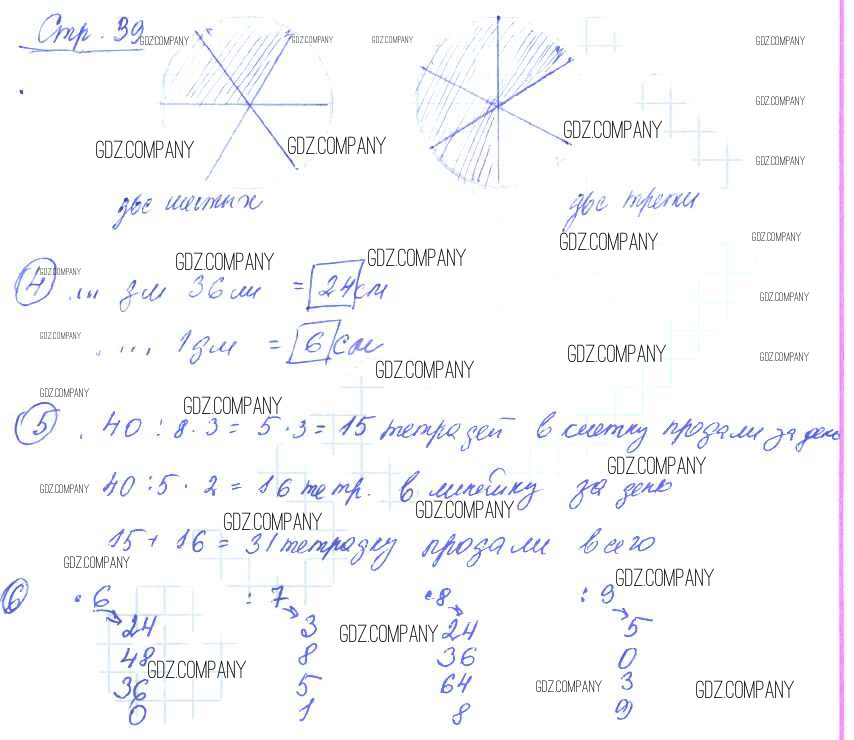 Стр. 39
GDZ.COMPANY GDZ.COMPANY GDZ.COMPANY GDZ.COMPANY
GDZ.COMPANY
GDZ.COMPANY GDZ.COMPANY GDZ.COMPANY
GDZ.COMPANY
две шестых две трети
GDZ.COMPANY GDZ.COMPANY
GDZ.COMPANY GDZ.COMPANY GDZ.COMPANY
4 ... дм 36 = 24 см
GDZ.COMPANY
GDZ.COMPANY
... 1 дм = 6 см
GDZ.COMPANY GDZ.COMPANY
GDZ.COMPANY
GDZ.COMPANY
GDZ.COMPANY
5. 40 : 8 · 3 = 5 · 3 = 15 тетрадей в клетку продали за день
GDZ.COMPANY
GDZ.COMPANY 40 : 5 · 2 = 16 тетр. в линейку за день
GDZ.COMPANY GDZ.COMPANY
15 + 16 = 31 тетрадку продали всего
GDZ.COMPANY
GDZ.COMPANY
6 · 6 : 7 · 8 : 9
24 3 24 5
GDZ.COMPANY
48 8 36 0
GDZ.COMPANY
36 5 64 3
GDZ.COMPANY GDZ.COMPANY
0 1 8 9